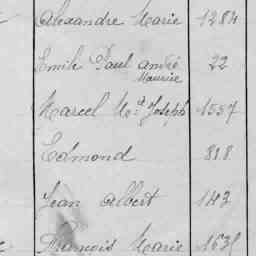 Alexandre Marie 1284
Emile Paul André 22
Maurice
Marcel Md Joseph 1557
Edmond 818
Jean Albert 143
François Marie